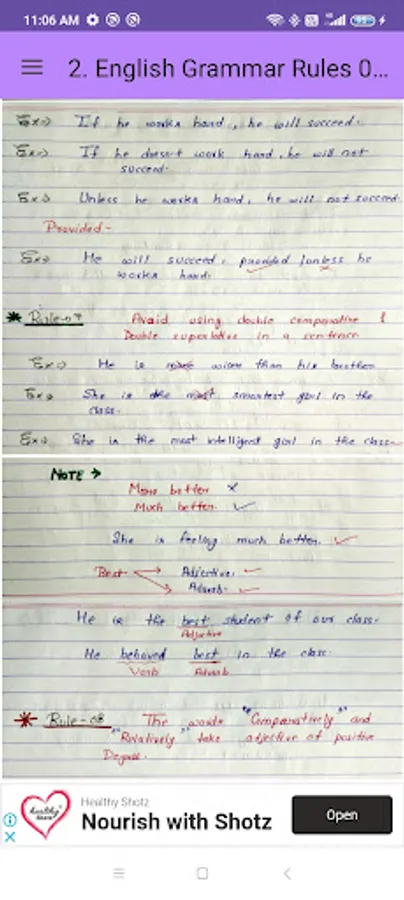 11:06 AM
2. English Grammar Rules 0...
Ex=> If he works hard, he will succeed.
Ex=> If he doesn't work hard, he will not
succeed.
Ex=> Unless he works hard, he will not succeed.
Provided-
Ex=> He will succeed, provided/unless he
works hard.
Rule-07 Avoid using double comparative &
Double superlative in a sentence.
Ex=> He is more wiser than his brother.
Ex=> She is the most smartest girl in the
class.
Ex=> She is the most intelligent girl in the class.
NOTE →
More better ×
Much better. ✓
She is feeling much better. ✓
Best → Adjective. ✓
→ Adverb. ✓
He is the best student of our class.
Adjective
He behaved best in the class.
Verb Adverb
Rule-08 The words "Comparatively" and
"Relatively" take adjective of positive
Degree.
healthy shotz
Healthy Shotz
Nourish with Shotz
Open